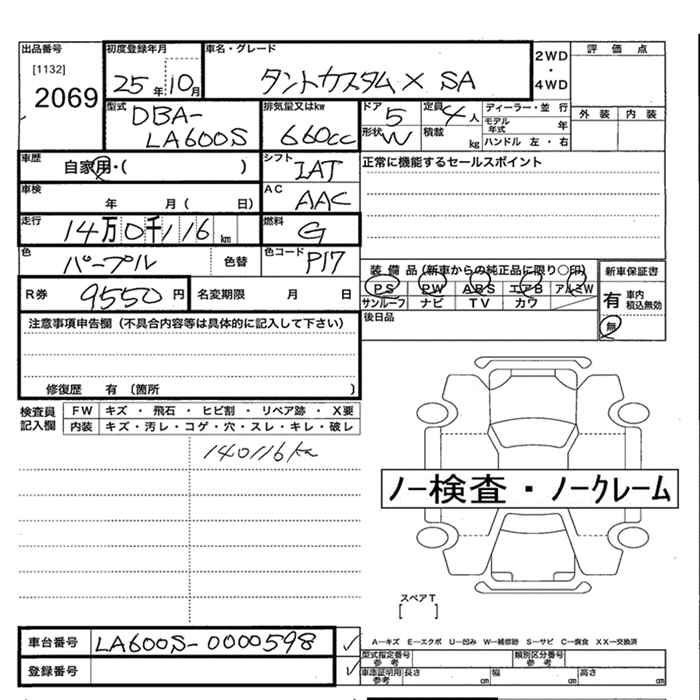 出品番号
[1132]
2069
初度登録年月
25年10月
車名・グレード
タントカスタムX SA
2WD
・
4WD
評価点
外装 内装
型式
DBA-
LA600S
排気量又はkw
660cc
ドア
5
定員
4人
形状
W
積載
kg
ディーラー・並行
モデル年式 年
ハンドル 左・右
車歴
自家用・( )
シフト
IAT
正常に機能するセールスポイント
車検
年 月( 日)
AC
AAC
走行
14万0千116km
燃料
G
色
パープル
色替
色コード
P17
装備品(新車からの純正品に限り○印)
PS PW ABS エアB アルミW
サンルーフ ナビ TV カワ
新車保証書
有 車内積込無効
無
R券
9550円
名変期限 月 日
後日品
注意事項申告欄(不具合内容等は具体的に記入して下さい)
修復歴 有 〔箇所 〕
検査員記入欄
FW キズ・飛石・ヒビ割・リペア跡・X要
内装 キズ・汚レ・コゲ・穴・スレ・キレ・破レ
140116km
ノー検査・ノークレーム
スペアT
[ ]
車台番号
LA600S-0000598
登録番号
A-キズ E-エクボ U-凹み W-補修跡 S-サビ C-腐食 XX-交換済
型式指定番号
参考
類別区分番号
参考
車庫証明用
参考
長さ cm
幅 cm
高さ cm